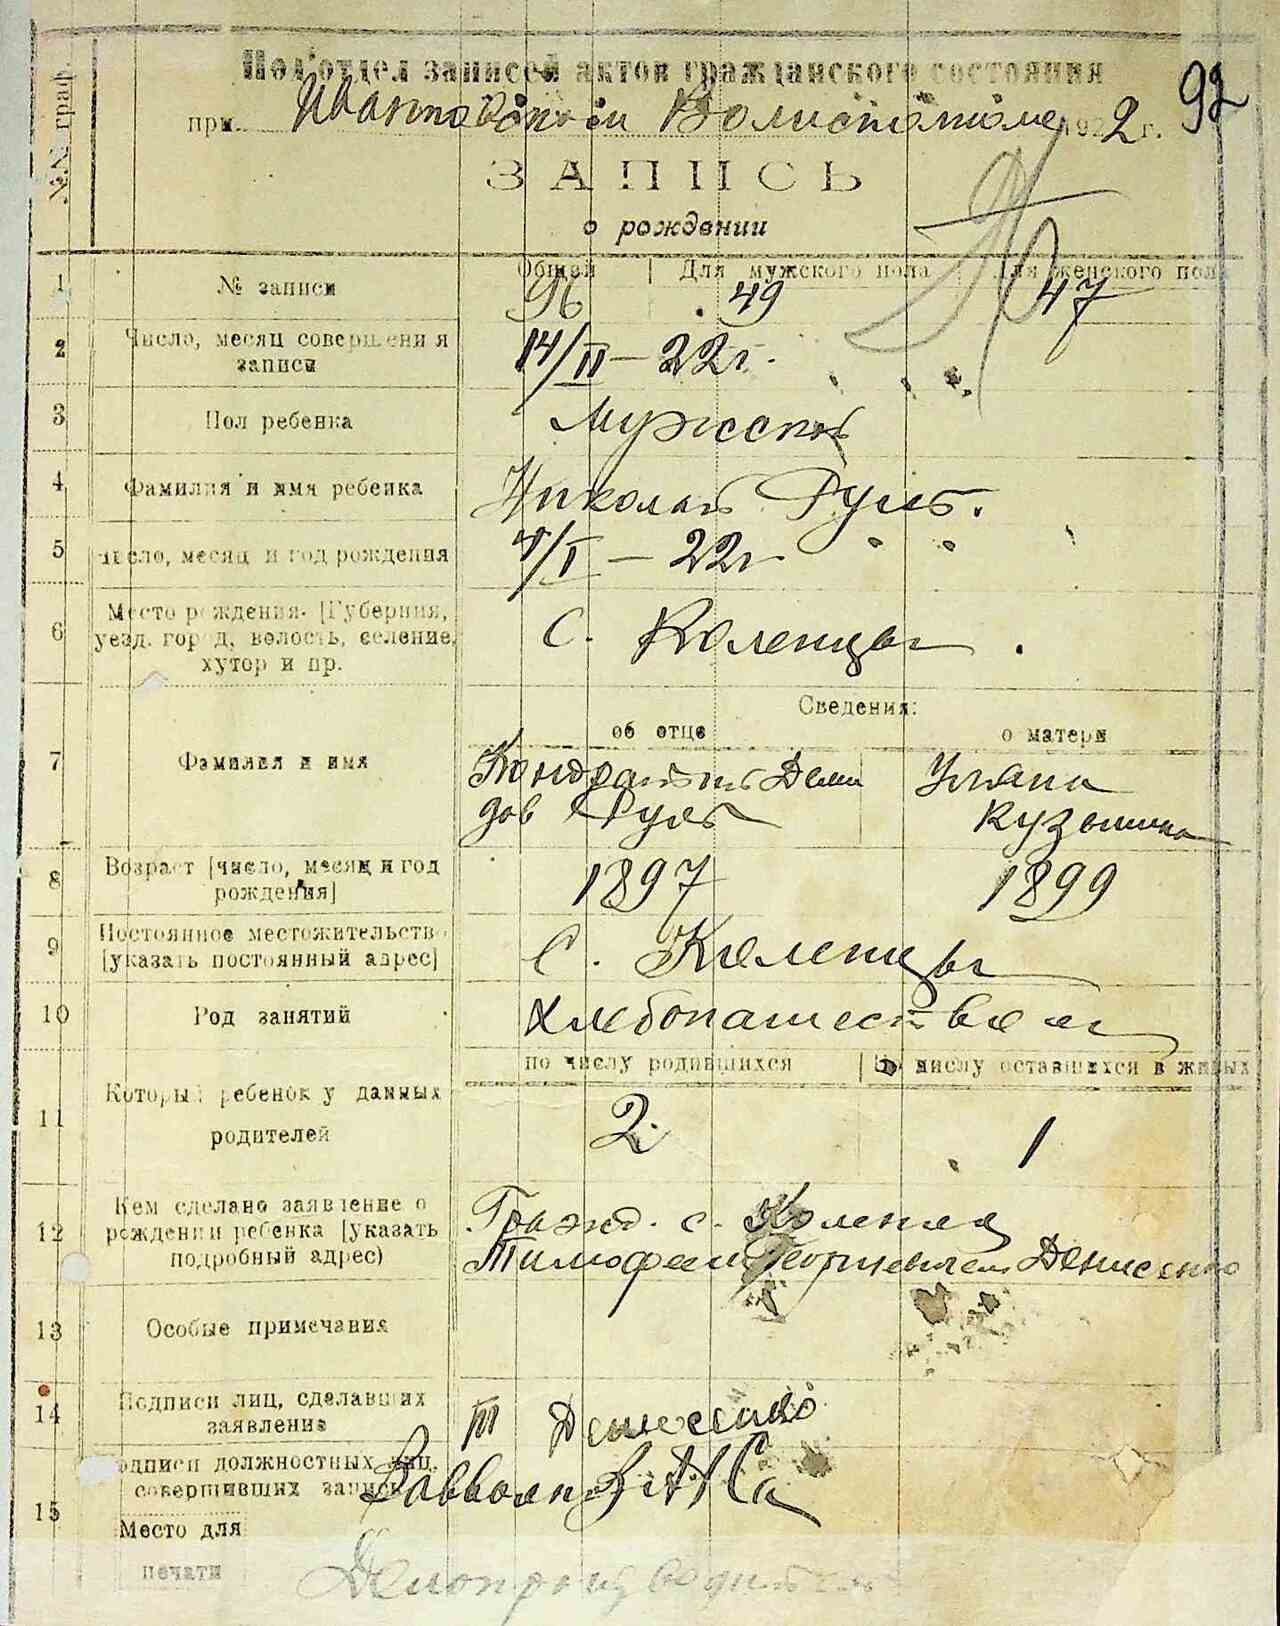 №№ граф
Подотдел записей актов гражданского состояния
92
при Иванковском Волисполкоме 1922 г.
ЗАПИСЬ
о рождении
Общей Для мужского пола Для женского пола
1 № записи 96 49 47
2 Число, месяц совершения записи 14/II – 22 г.
3 Пол ребенка Мужской
4 Фамилия и имя ребенка Николай Руль.
5 Число, месяц и год рождения /I – 22 г
6 Место рождения [Губерния, уезд, город, волость, селение, хутор и пр. С. Коленцы
Сведения:
об отце о матери
7 Фамилия и имя Кондратий Деми Ульяна
дов Руль Кузьмина
8 Возраст [число, месяц и год рождения] 1897 1899
9 Постоянное местожительство [указать постоянный адрес] С. Коленцы
10 Род занятий Хлебопашеством
по числу родившихся По числу оставшихся в живых
11 Который ребенок у данных родителей 2. 1
12 Кем сделано заявление о рождении ребенка [указать подробный адрес) Гражд. с. Коленец
Тимофеем Денисенко
13 Особые примечания
14 Подписи лиц, сделавших заявление Т Денисенко
15 Подписи должностных лиц, совершивших запись ЗАГСа
Место для
печати
Делопроизводитель